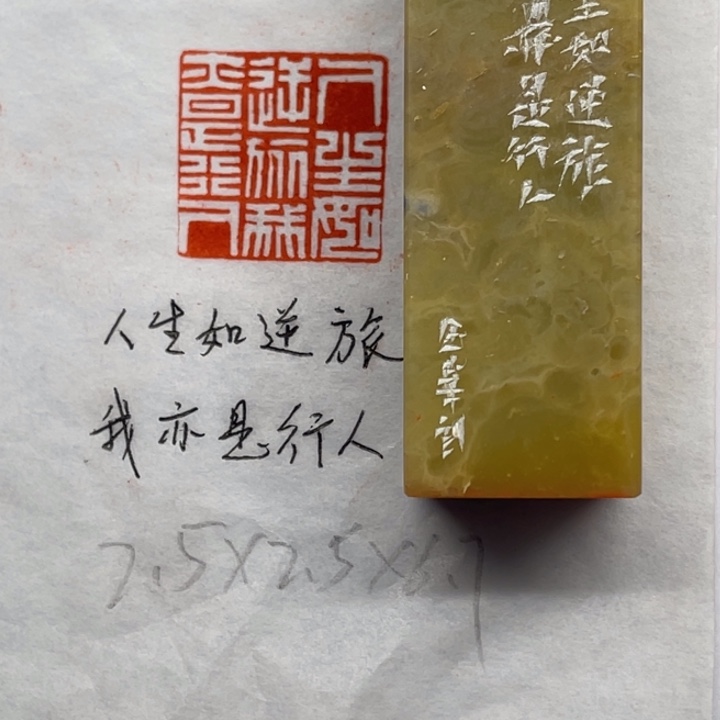 人生如
逆旅我
亦是行人
人生如逆旅
我亦是行人
2.5X2.5X5.7
生如逆旅
亦是行人